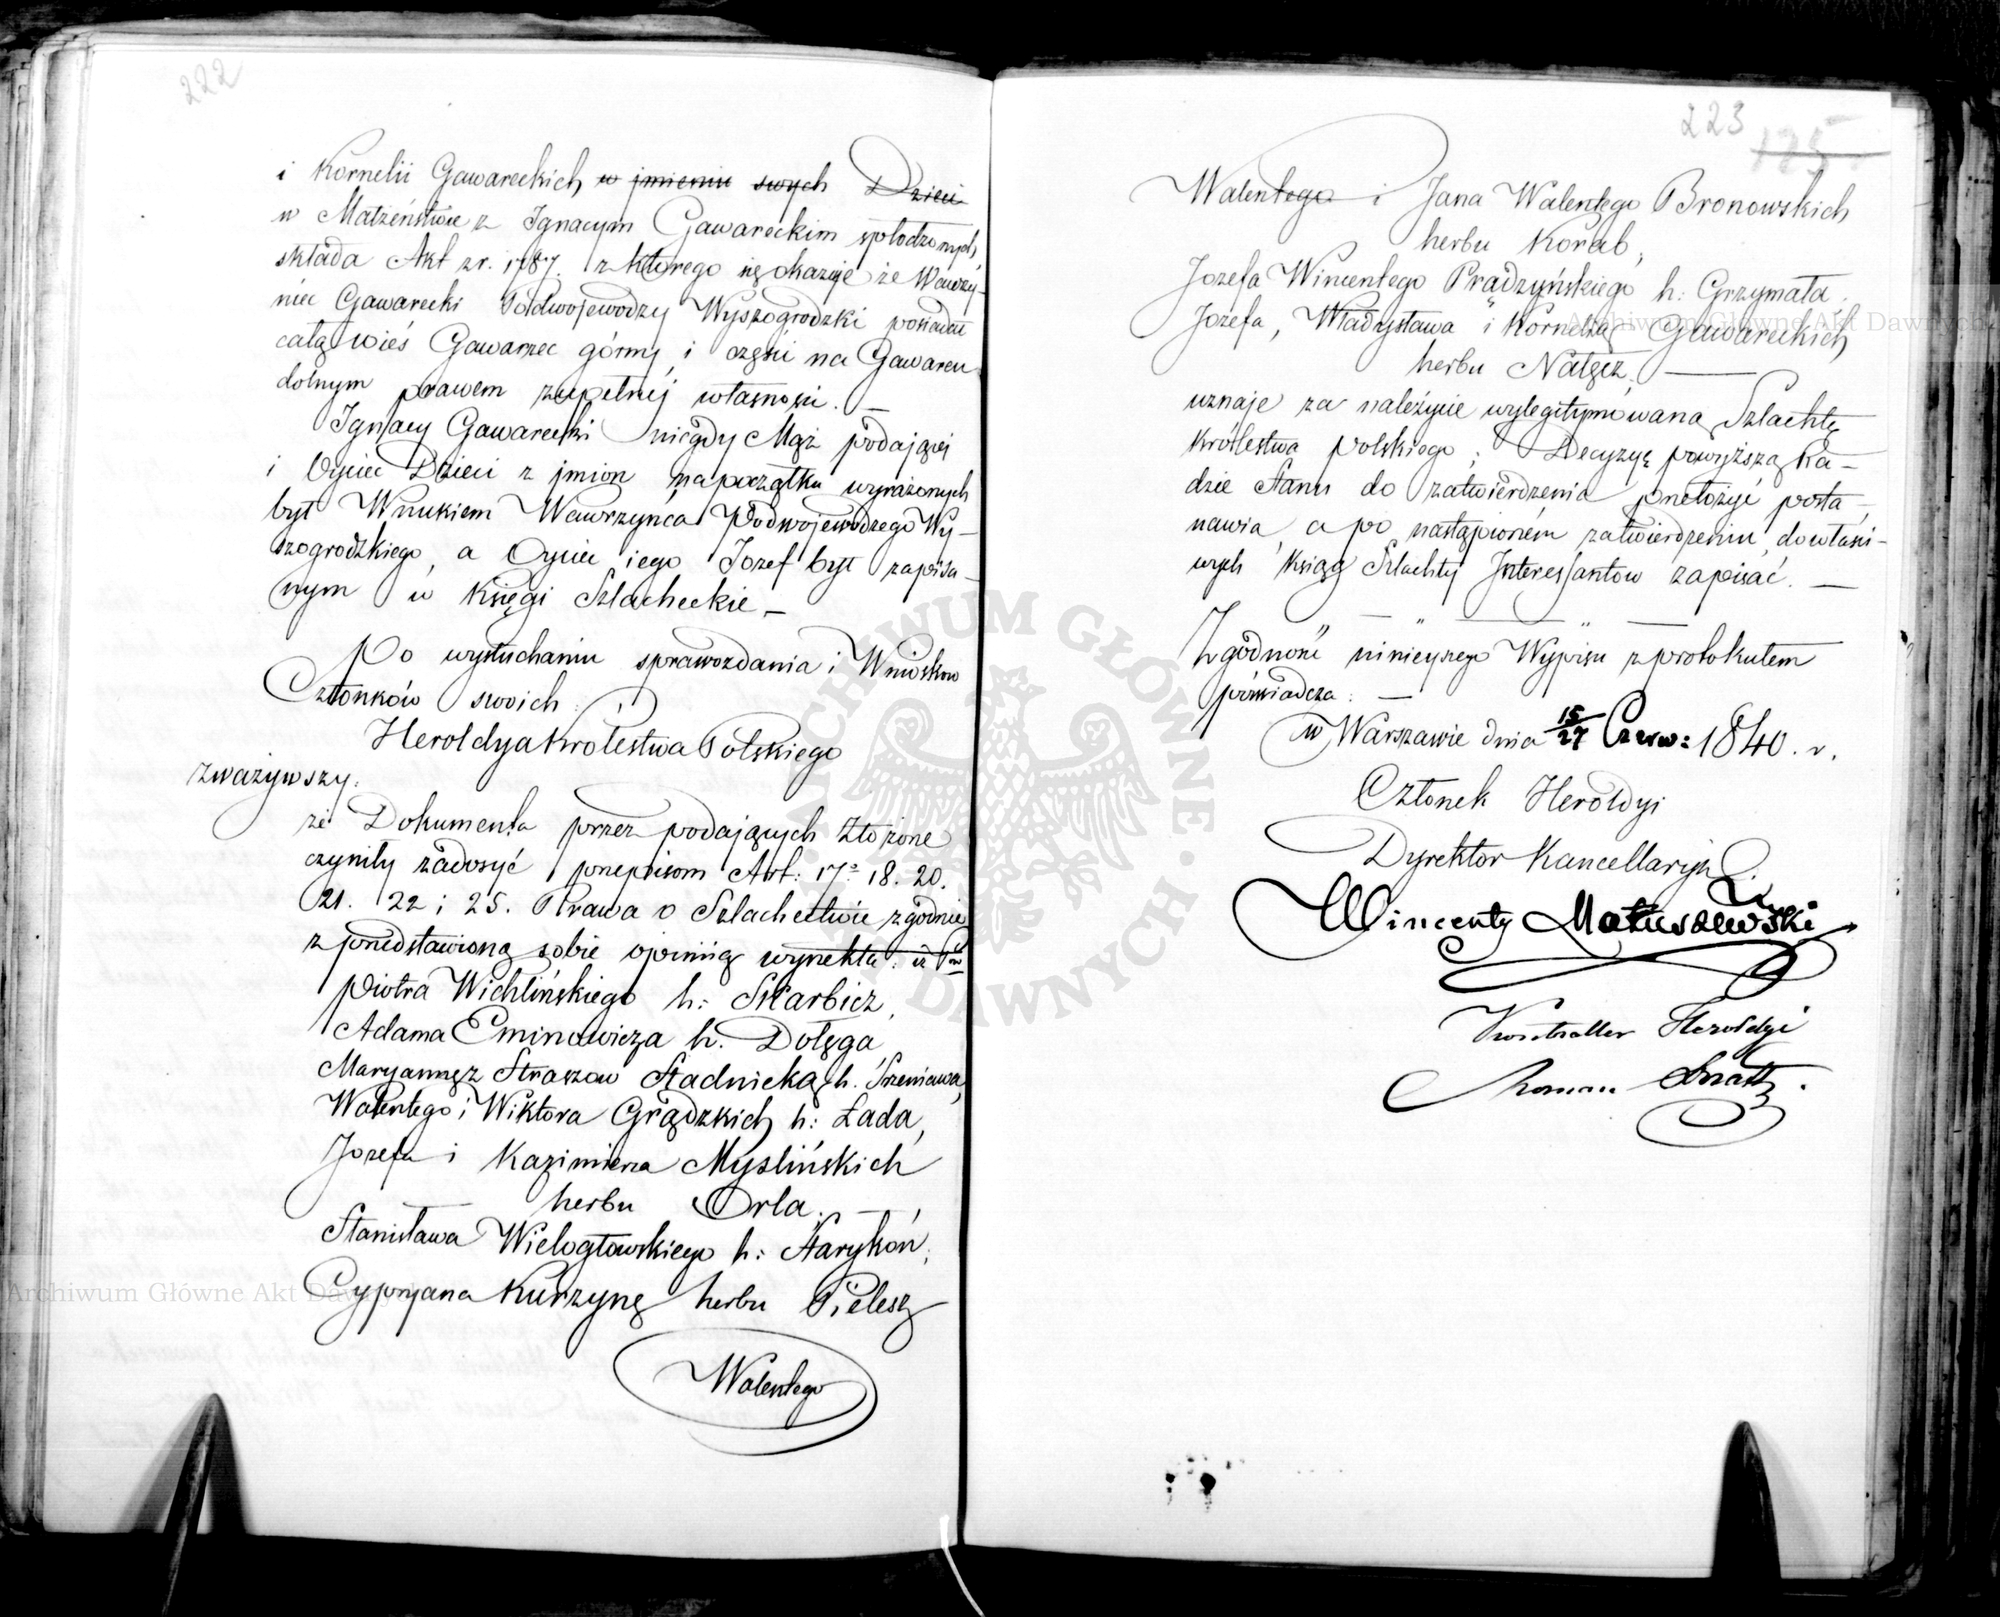 222
i Kornelii Gawareckich w jmieniu swych Dzieci
w Małżeństwie z Ignacym Gawareckim spłodzonych,
składa Akt z r. 1787. z którego się okazuje że Wawrzy-
niec Gawarecki Podwojewodzy Wyszogrodzki posiadał
całą wieś Gawarzec górny i części na Gawarcu
dolnym prawem zupełnej własności. —
Ignacy Gawarecki niegdy Mąż podającej
i Oyciec Dzieci z jmion na początku wyrażonych
był Wnukiem Wawrzyńca Podwojewodzego Wy-
szogrodzkiego, a Oyciec iego Jozef był zapisa-
nym w Księgi Szlacheckie —
Po wysłuchaniu sprawozdania i Wniosków
Członków swoich
Heroldya Królestwa Polskiego
zważywszy:
że Dokumenta przez podających złożone
czyniły zadosyć przepisom Art: 17. 18. 20.
21. 22 i 25. Prawa o Szlachectwie zgodnie
z przedstawioną sobie opinią wyrzekła:
Piotra Wichlińskiego h: Skarbicz,
Adama Eminowicza h. Dołęga
Maryannę z Straszow Stadnicką h. Śreniawa,
Walentego i Wiktora Grądzkich h: Łada,
Jozefa i Kazimierza Myslińskich
herbu Orla. —
Stanisława Wielogłowskiego h: Starykoń,
Cypryana Kurzynę herbu Pielesz
Walentego
223
125
Walentego i Jana Walentego Bronowskich
herbu Korab,
Jozefa Wincentego Prądzyńskiego h: Grzymała.
Jozefa, Władysława i Kornelią Gawareckich
herbu Nałęcz. —
uznaje za należycie wylegitymowaną Szlachtę
Królestwa polskiego; Decyzyę powyższą Ra-
dzie Stanu do zatwierdzenia przełożyć posta-
nawia, a po nastąpioném zatwierdzeniu, do właści-
wych Ksiąg Szlachty Interessantow zapisać. —
Zgodność ninieyszego Wypisu z protokułem
poświadcza. —
w Warszawie dnia 15/27 Czerw: 1840. r.
Członek Heroldyi
Dyrektor Kancellaryi
Wincenty Matuszewski
Kontroller Heroldyi
Roman
Archiwum Główne Akt Dawnych
Archiwum Główne Akt Dawnych
ARCHIWUM GŁÓWNE · AKT DAWNYCH ·